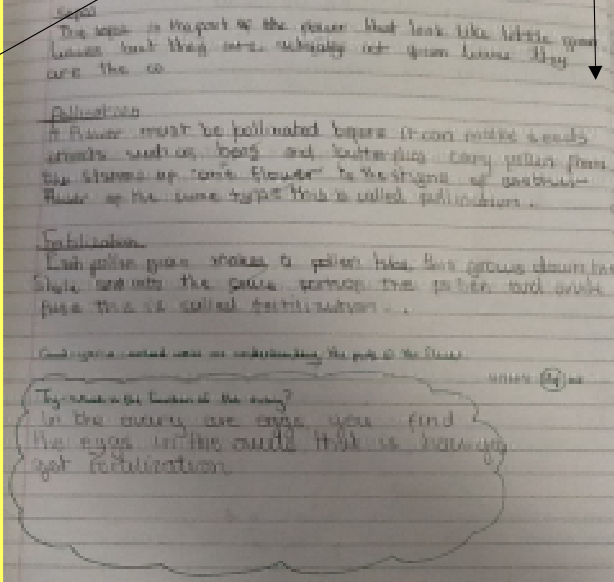 Sepal
The sepal is the part of the flower that look like little green
leaves but they are actually not green leaves they
are the co
Pollination
A flower must be pollinated before it can make seeds
insects such as bees and butterflies carry pollen from
the stamens of one flower to the stigma of another
flower of the same type this is called pollination.
Fertilization
Each pollen grain makes a pollen tube, this grows down the
Style and into the the pollen and ovule
fuse this is called fertilization..
understanding the parts of the flower.
Try - what is the function of the ovary?
in the ovary are eggs you find
the eggs in the that is
get fertilization